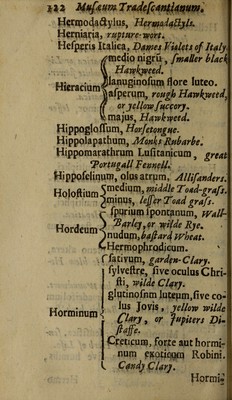 122 Musæum Tradescantianum.
Hermodactylus, Hermodactyls.
Herniaria, rupture-wort.
Hesperis Italica, Dames Violets of Italy
medio nigrū, smaller black
Hawkweed.
lanuginosum flore luteo.
Hieracium asperum, rough Hawkweed,
or yellow succory.
majus, Hawkweed.
Hippoglossum, Horsetongue.
Hippolapathum, Monks Rubarbe.
Hippomarathrum Lusitanicum, great
Portugall Fennell.
Hipposelinum, olus atrum. Allisanders.
Holostium medium, middle Toad-grass.
minus, lesser Toad grass.
spurium spontanum, Wall-
Barley, or wilde Rye.
Hordeum nudum, bastard Wheat.
Hermophrodicum.
sativum, garden-Clary.
sylvestre, sive oculus Chri-
sti, wilde Clary.
glutinosum luteum, sive co-
lus Jovis, yellow wilde
Horminum Clary, or Jupiters Di-
staffe.
Creticum, forte aut hormi-
num exoticum Robini.
Candy Clary.
Hormi-